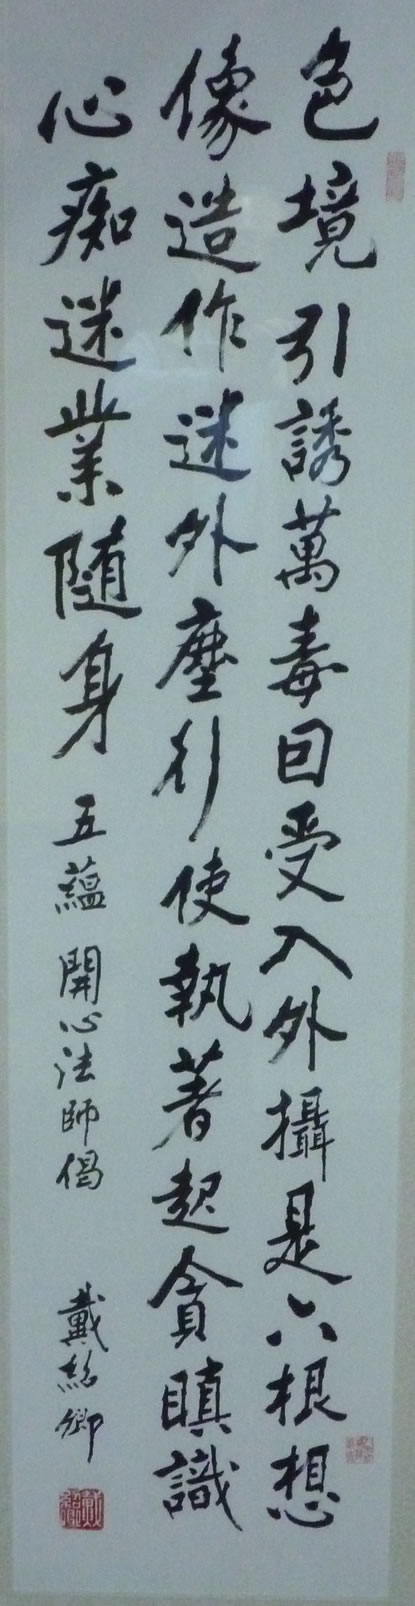 色境引誘萬毒回受入外攝是六根想
像造作迷外塵行使執著起貪瞋識
心痴迷業随身 五蘊 開心法師偈 戴紹卿